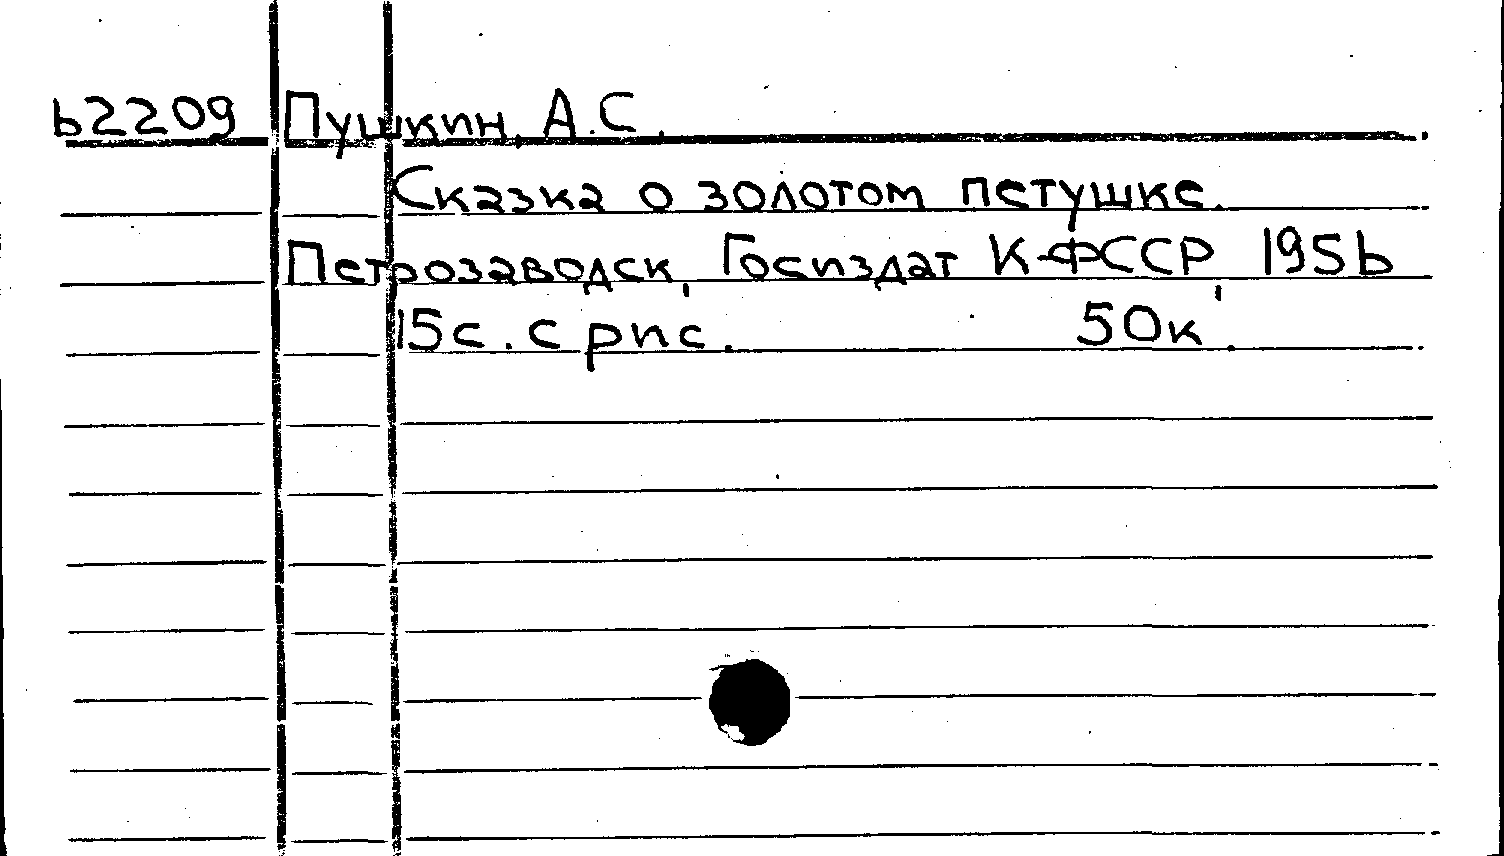 62209 Пушкин, А.С.
Сказка о золотом петушке.
Петрозаводск, Госиздат К-ФССР, 1956
15с. с рис. 50к.